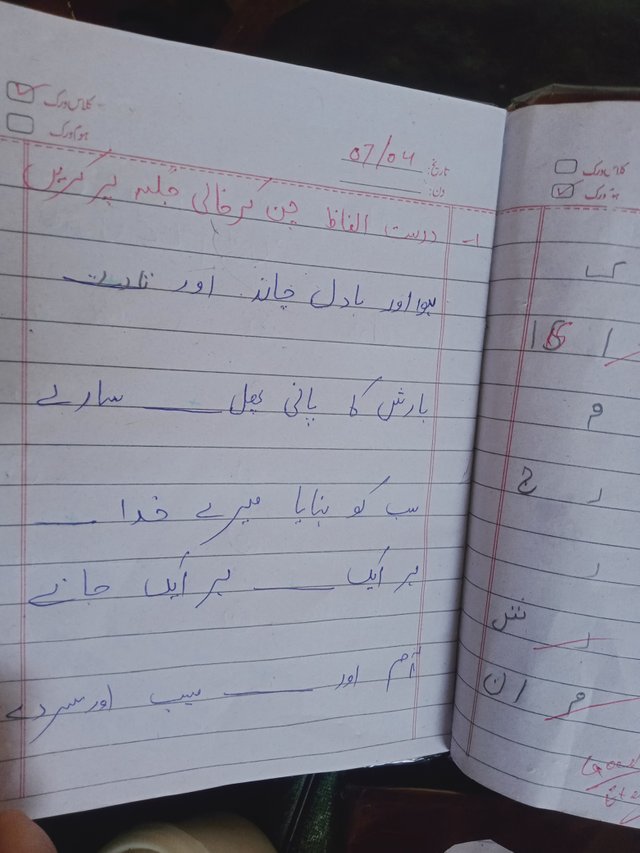 کلاس ورک
ہوم ورک
تاریخ: 07/04
دن:
۱- درست الفاظ چن کر خالی جگہ پر کریں
ہوا اور بادل چاند اور
بارش کا پانی پھل ____ سارے
سب کو بنایا میرے خدا ____
ہر ایک ____ ہر ایک جانے
آم اور ____ سیب اور سردے
کلاس ورک
ہوم ورک
م
ر ح
ر
ر ش
م ان
Good